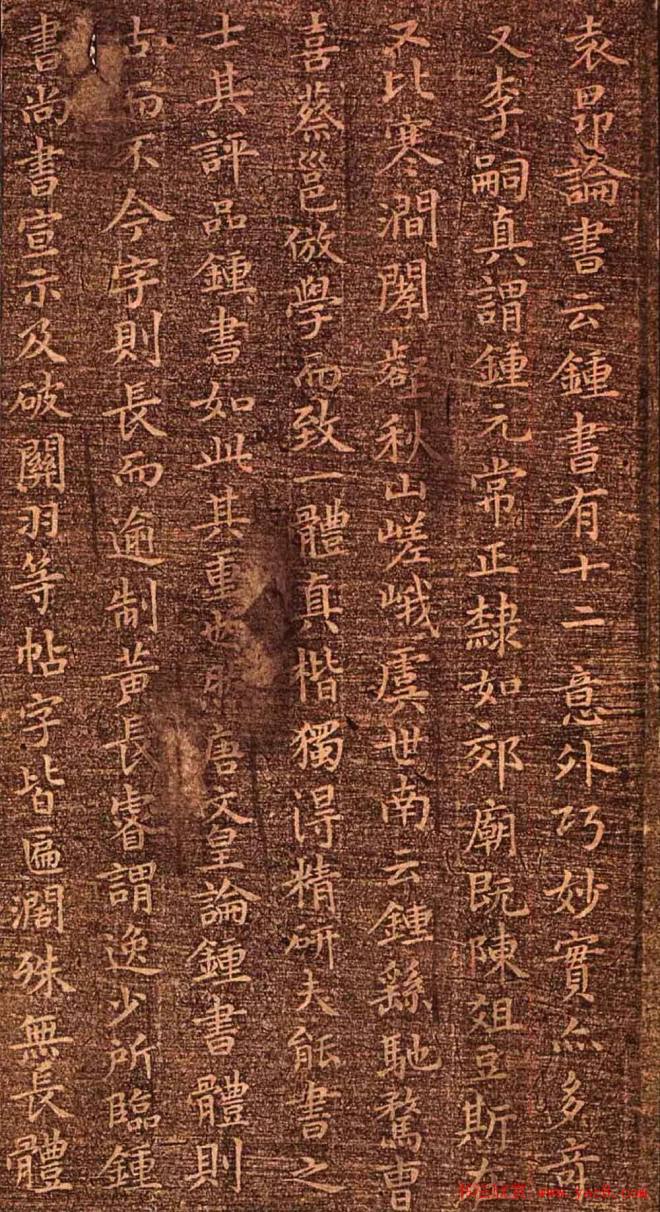 袁昂論書云鍾書有十二意外巧妙實亦多奇
又李嗣真謂鍾元常正隷如郊廟既陳俎豆斯在
又比寒澗閟壑秋山嵯峨虞世南云鍾繇馳騖曹
喜蔡邕倣學而致一體真楷獨得精研夫能書之
士其評品鍾書如此其重也唐文皇論鍾書體則
古而不今字則長而逾制黃長睿謂逸少所臨鍾
書尚書宣示及破關羽等帖字皆匾濶殊無長體
www.yac8.com